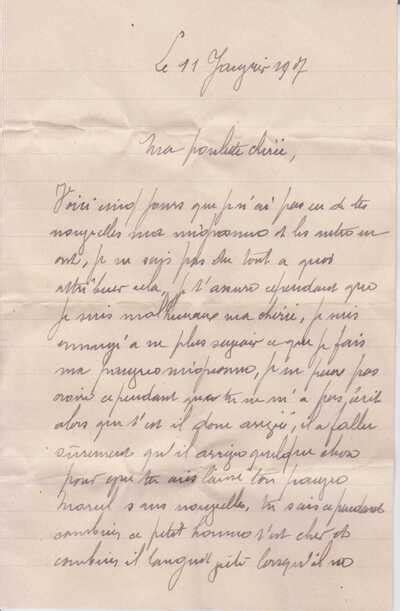 Le 11 Janvier 1917
Ma poulette chérie,
Voici cinq jours que je n'ai pas eu de tes
nouvelles ma mignonne et les autres en
ont, je ne sais pas du tout a quoi
attribuer cela, je t'assure cependant que
je suis malheureux ma chérie, je suis
enragé a ne plus savoir ce que je fais
ma pauvre mignonne, je ne peux pas
croire cependant que tu ne m'a pas écrit
alors que t'est il donc arrivé, il a fallu
sûrement qu'il arrive quelque chose
pour que tu aies laissé ton pauvre
Marcel sans nouvelle, tu sais cependant
combien ce petit homme t'est cher et
combien il languit lorsqu'il ne